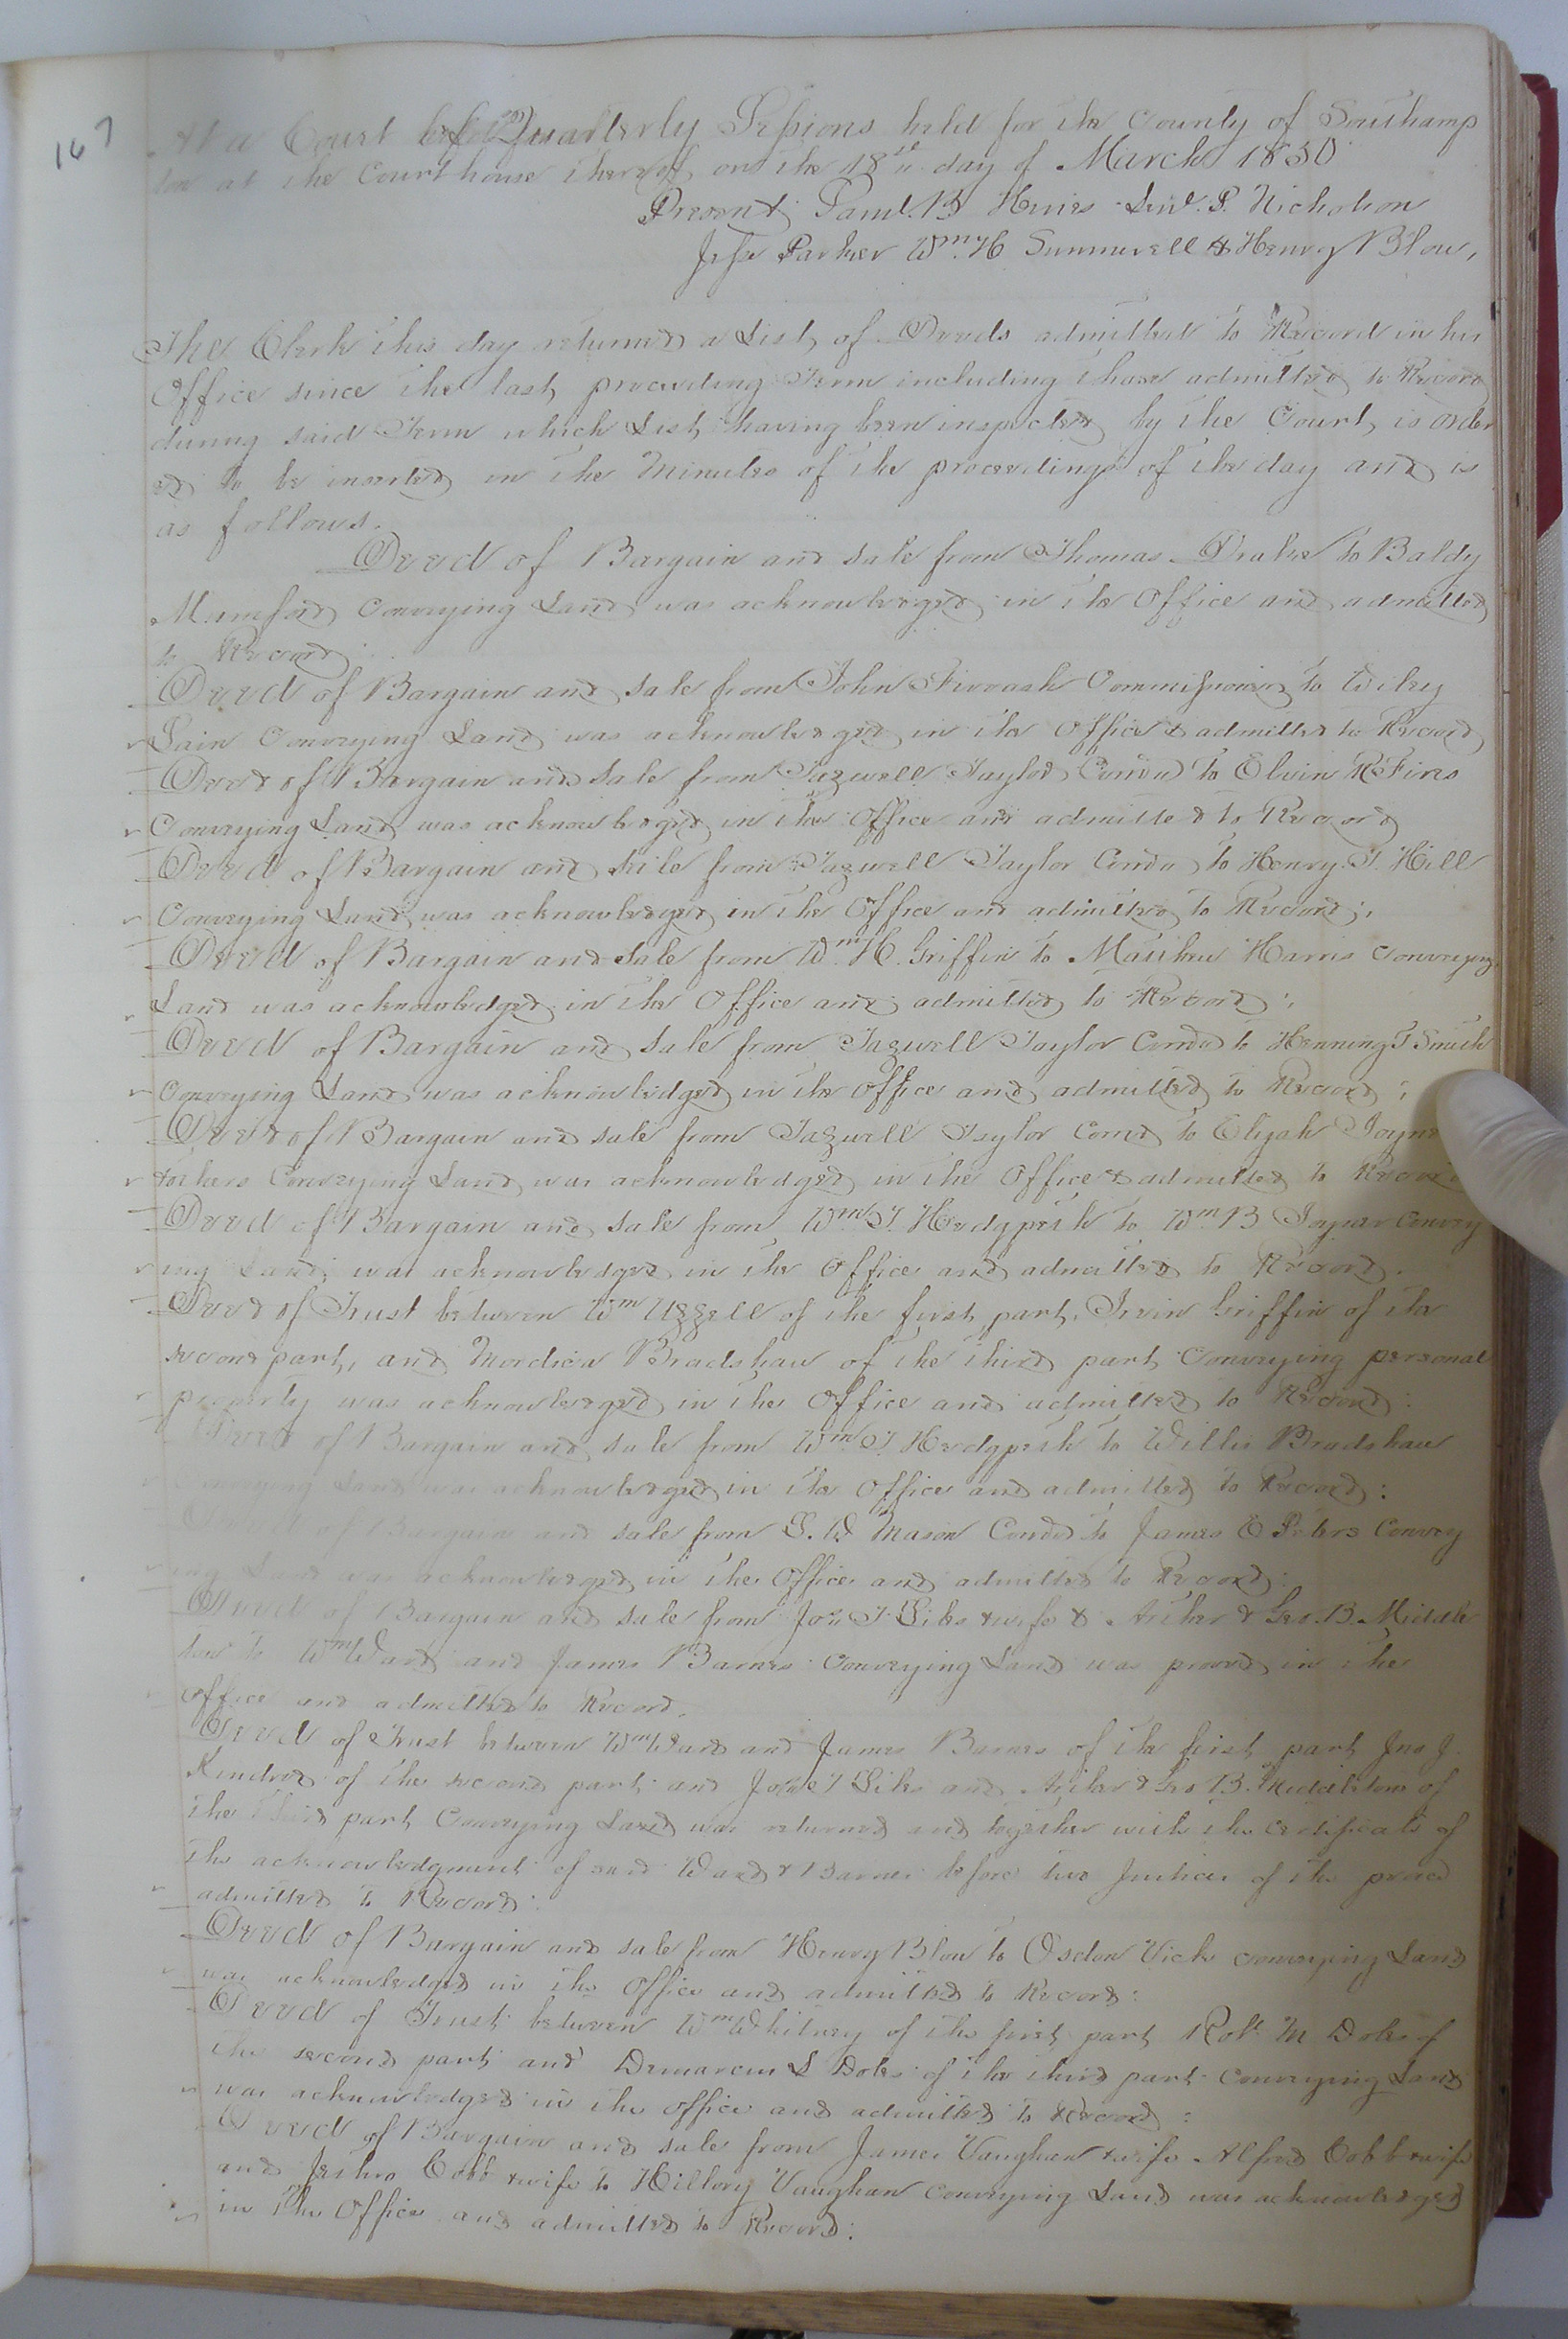 167
At a Court of Quarterly Sessions held for the County of Southamp
ton at the Courthouse thereof, on the 18th day of March 1850
Present Saml. B Hines Lewl. P. Nicholson
Jesse Parker Wm. H Summerell & Henry Blow,
The Clerk this day returned a List of Deeds admitted to Record in his
Office since the last preceeding Term including those admitted to Record
during said Term which List having been inspected by the Court, is order
ed to be inserted in the Minutes of the proceedings of the day and is
as follows.
Deed of Bargain and sale from Thomas Drake to Baldy
Mumford Conveying Land was acknowledged in the Office and admitted
to Record:
Deed of Bargain and sale from John Commissioner to Wiley
Lain Conveying Land was acknowledged in the Office & admitted to Record
Deed of Bargain and sale from Tazwell Taylor to Elvin R Fires
Conveying Land was acknowledged in the Office and admitted to Record
Deed of Bargain and sale from Tazwell Taylor to Henry T. Hill
Conveying Land was acknowledged in the Office and admitted to Record;
Deed of Bargain and sale from Wm. H. Griffin to Mathew Harris Conveying
Land was acknowledged in the Office and admitted to Record;
Deed of Bargain and sale from Tazwell Taylor to Henning T Smith
Conveying Land was acknowledged in the Office and admitted to Record;
Deed of Bargain and sale from Tazwell Taylor to Elijah Joyner
& others Conveying Land was acknowledged in the Office & admitted to Record
Deed of Bargain and sale from Wm T. Hedgpeth to Wm B Joyner Convey
ing Land was acknowledged in the Office and admitted to Record.
Deed of Trust between Wm Uzzell of the first part, Irvin Griffin of the
second part, and Mordica Bradshaw of the third part Conveying personal
property was acknowledged in the Office and admitted to Record:
Deed of Bargain and sale from Wm T. Hedgpeth to Willis Bradshaw
Conveying Land was acknowledged in the Office and admitted to Record:
Deed of Bargain and sale from L. W. Mason to James E Peters Convey
ing Land was acknowledged in the Office and admitted to Record:
Deed of Bargain and sale from T Liles & wife & Archer & Geo. B. Middle
ton to Wm Ward and James Barnes Conveying Land was proved in the
office and admitted to Record.
Deed of Trust between Wm Ward and James Barnes of the first part Jno J.
Kindred of the second part and T Liles and Archer & Geo B. Middleton of
the third part Conveying Land was returned and together with the certificate of
the acknowledgment of said Ward & Barnes before two Justices of the peace
admitted to Record:
Deed of Bargain and sale from Henry Blow to Vick conveying Land
was acknowledged in the Office and admitted to Record:
Deed of Trust between Wm Whitney of the first part Robt M Doles of
the second part and Demarcus L Doles of the third part conveying Land
was acknowledged in the office and admitted to Record:
Deed of Bargain and sale from James Vaughan & wife Alfred Cobb & wife
and Cobb & wife to Hillory Vaughan conveying Land was acknowledged
in the Office and admitted to Record: